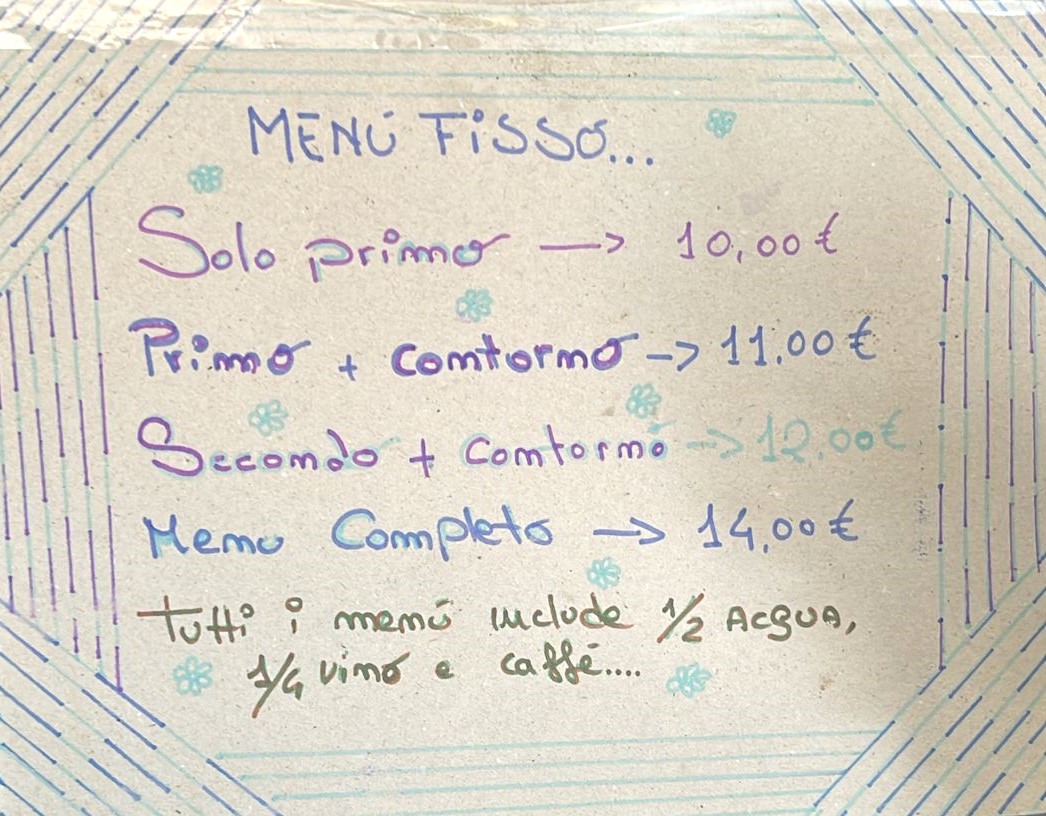 MENÚ FISSO...
Solo primo —> 10,00€
Primo + contorno —> 11,00€
Secondo + contorno —> 12,00€
Menu Completo —> 14,00€
Tutti i menú include 1/2 ACQUA,
1/4 vino e caffé....